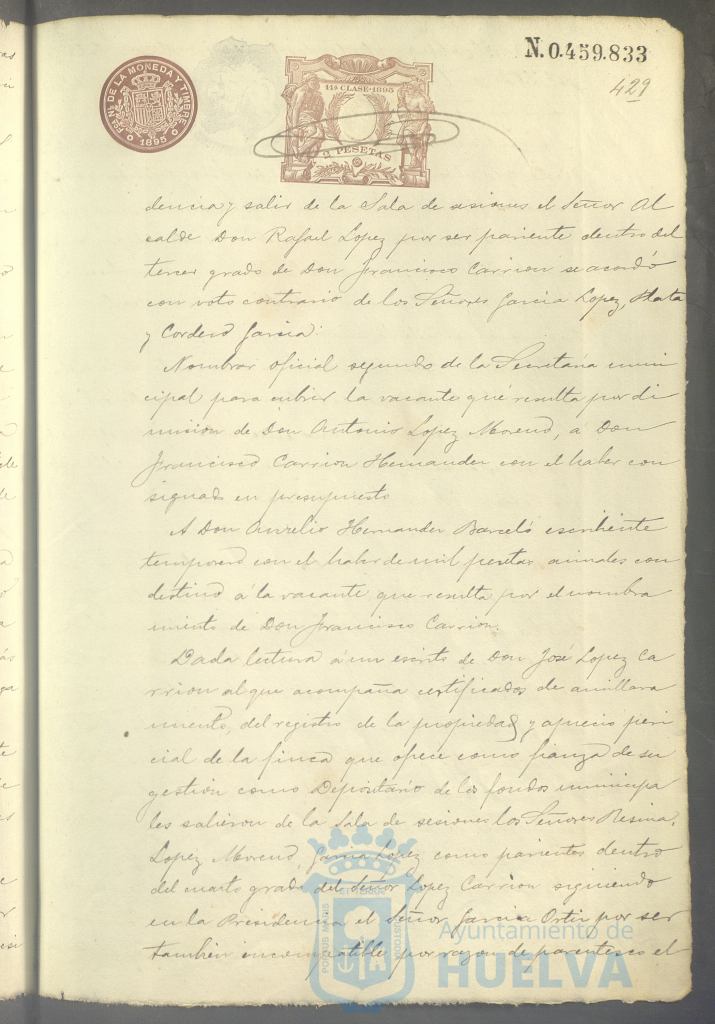 N.0.459.833
429
FCA. NAL. DE LA MONEDA Y TIMBRE
1895
11ª CLASE-1895
2 PESETAS
dencia y salir de la Sala de sesiones el Señor Al
calde Don Rafael Lopez por ser pariente dentro del
tercer grado de Don Francisco Carrion se acordó
con voto contrario de los Señores Garcia Lopez, Plata
y Cordero Garcia:
Nombrar oficial segundo de la Secretaria muni
cipal para cubrir la vacante que resulta por di
mision de Don Antonio Lopez Moreno, a Don
Francisco Carrion Hernandez con el haber con
signado en presupuesto
A Don Aurelio Hernandez Barceló escribiente
temporero con el haber de mil pesetas anuales con
destino á la vacante que resulta por el nombra
miento de Don Francisco Carrion.
Dada lectura á un escrito de Don José Lopez Ca
rrion al que acompaña certificados de amillara
miento, del registro de la propiedad y aprecio peri
cial de la finca que ofrece como fianza de su
gestión como Depositario de los fondos municipa
les salieron de la Sala de sesiones los Señores Resina,
Lopez Moreno, Garcia Lopez como parientes dentro
del cuarto grado del Señor Lopez Carrion siguiendo
en la Presidencia el Señor Garcia Ortiz por ser
tambien incompatible por razon de parentesco el
PORTUS MARIS
CUSTODIA
Ayuntamiento de
HUELVA